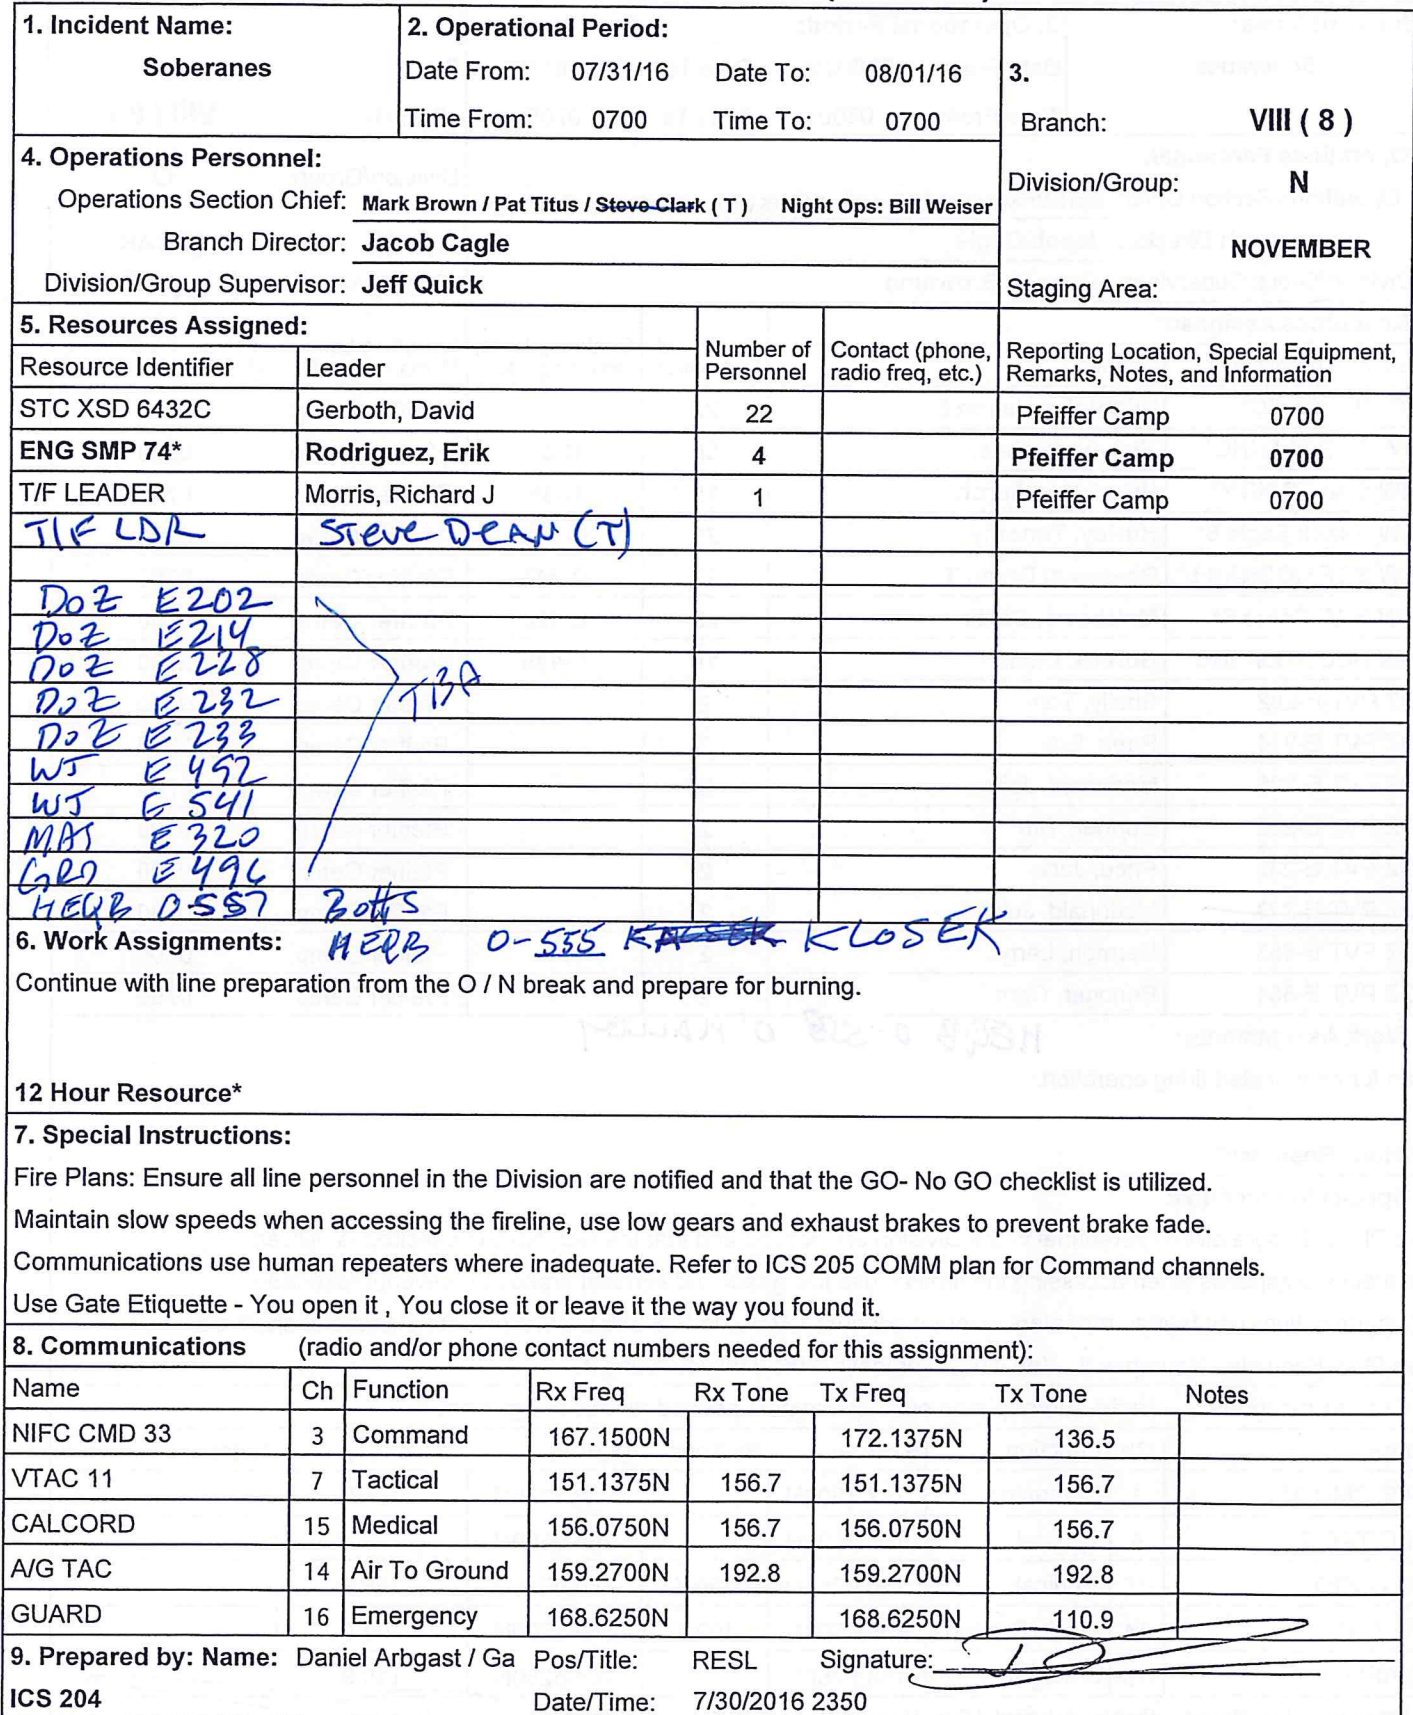 1. Incident Name:
Soberanes
2. Operational Period:
Date From: 07/31/16 Date To: 08/01/16
Time From: 0700 Time To: 0700
3.
Branch: VIII ( 8 )
Division/Group: N
NOVEMBER
Staging Area:
4. Operations Personnel:
Operations Section Chief: Mark Brown / Pat Titus / Steve Clark ( T ) Night Ops: Bill Weiser
Branch Director: Jacob Cagle
Division/Group Supervisor: Jeff Quick
5. Resources Assigned:
Resource Identifier Leader Number of Personnel Contact (phone, radio freq, etc.) Reporting Location, Special Equipment, Remarks, Notes, and Information
STC XSD 6432C Gerboth, David 22 Pfeiffer Camp 0700
ENG SMP 74* Rodriguez, Erik 4 Pfeiffer Camp 0700
T/F LEADER Morris, Richard J 1 Pfeiffer Camp 0700
T/F LDR Steve DEAN (T)
DOZ E202
DOZ E214
DOZ E228
DOZ E232 TBA
DOZ E233
WT E452
WT E541
MAS E320
GRD E496
HEQB O-557 Botts
6. Work Assignments: HEQB O-555 KLOSEK
Continue with line preparation from the O / N break and prepare for burning.
12 Hour Resource*
7. Special Instructions:
Fire Plans: Ensure all line personnel in the Division are notified and that the GO- No GO checklist is utilized.
Maintain slow speeds when accessing the fireline, use low gears and exhaust brakes to prevent brake fade.
Communications use human repeaters where inadequate. Refer to ICS 205 COMM plan for Command channels.
Use Gate Etiquette - You open it , You close it or leave it the way you found it.
8. Communications (radio and/or phone contact numbers needed for this assignment):
Name Ch Function Rx Freq Rx Tone Tx Freq Tx Tone Notes
NIFC CMD 33 3 Command 167.1500N 172.1375N 136.5
VTAC 11 7 Tactical 151.1375N 156.7 151.1375N 156.7
CALCORD 15 Medical 156.0750N 156.7 156.0750N 156.7
A/G TAC 14 Air To Ground 159.2700N 192.8 159.2700N 192.8
GUARD 16 Emergency 168.6250N 168.6250N 110.9
9. Prepared by: Name: Daniel Arbgast / Ga Pos/Title: RESL Signature:
ICS 204 Date/Time: 7/30/2016 2350